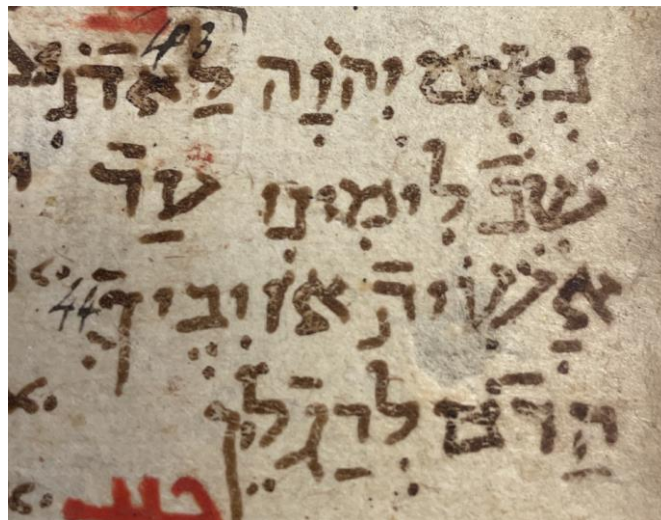 43
נְאֻם יְהֹוָה לַאדֹנִי
שֵׁב לִימִינִי עַד
אַשִׁית אוֹיבֶיךָ 44
הַדֹם לְרַגְלֶךָ